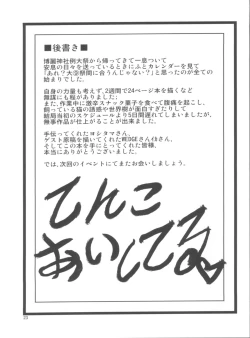 ■後書き■
博麗神社例大祭から帰ってきて一息つき
安息の日々を送っているときにふとカレンダーを見て
『あれ？大⑨祭間に合うんじゃない？』と思ったのが全ての
始まりでした。
自身の力量も考えず、2週間で24ページ本を描くなど
無謀にも程がありました；
また、作業中に激辛スナック菓子を食べて腹痛を起こし、
飼っている猫の誘惑や世界樹が面白すぎたりして
結局当初のスケジュールより5日間遅れてしまいましたが、
無事作品が仕上がることが出来ました。
手伝ってくれたヨシタマさん。
ゲスト原稿を描いてくれたWEDGEさん
そしてこの本を手にとってくれた皆様、
ありがとうございます。
では、次回のイベントにてまたお会いしましょう。
てんこ
あいしてる